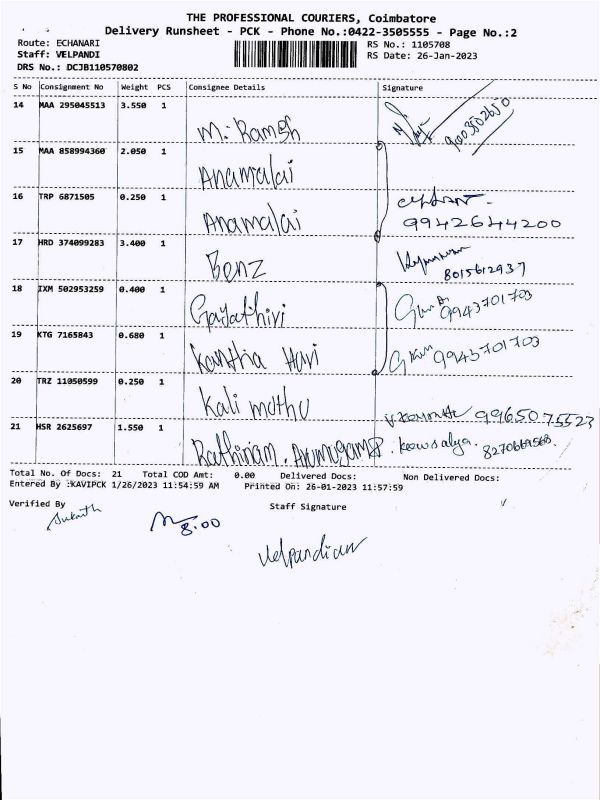 THE PROFESSIONAL COURIERS, Coimbatore
Delivery Runsheet - PCK - Phone No.:0422-3505555 - Page No.:2
Route: ECHANARI RS No.: 1105708
Staff: VELPANDI RS Date: 26-Jan-2023
DRS No.: DCJB110570802
S No Consignment No Weight PCS Consignee Details Signature
14 MAA 295045513 3.550 1 M. Ramesh
15 MAA 858994360 2.050 1 Anamalai
16 TRP 6871505 0.250 1 Anamalai 9942644200
17 HRD 374099283 3.400 1 Benz 8015612937
18 IXM 502953259 0.400 1 Gayathiri 9943701703
19 KTG 7165843 0.680 1 Kantha Hari 9943701703
20 TRZ 11050599 0.250 1 Kali muthu 9965075523
21 HSR 2625697 1.550 1 Rathinam. Arumugam kowsalya.
Total No. Of Docs: 21 Total COD Amt: 0.00 Delivered Docs: Non Delivered Docs:
Entered By :KAVIPCK 1/26/2023 11:54:59 AM Printed On: 26-01-2023 11:57:59
Verified By Staff Signature
8.00
Velpandian